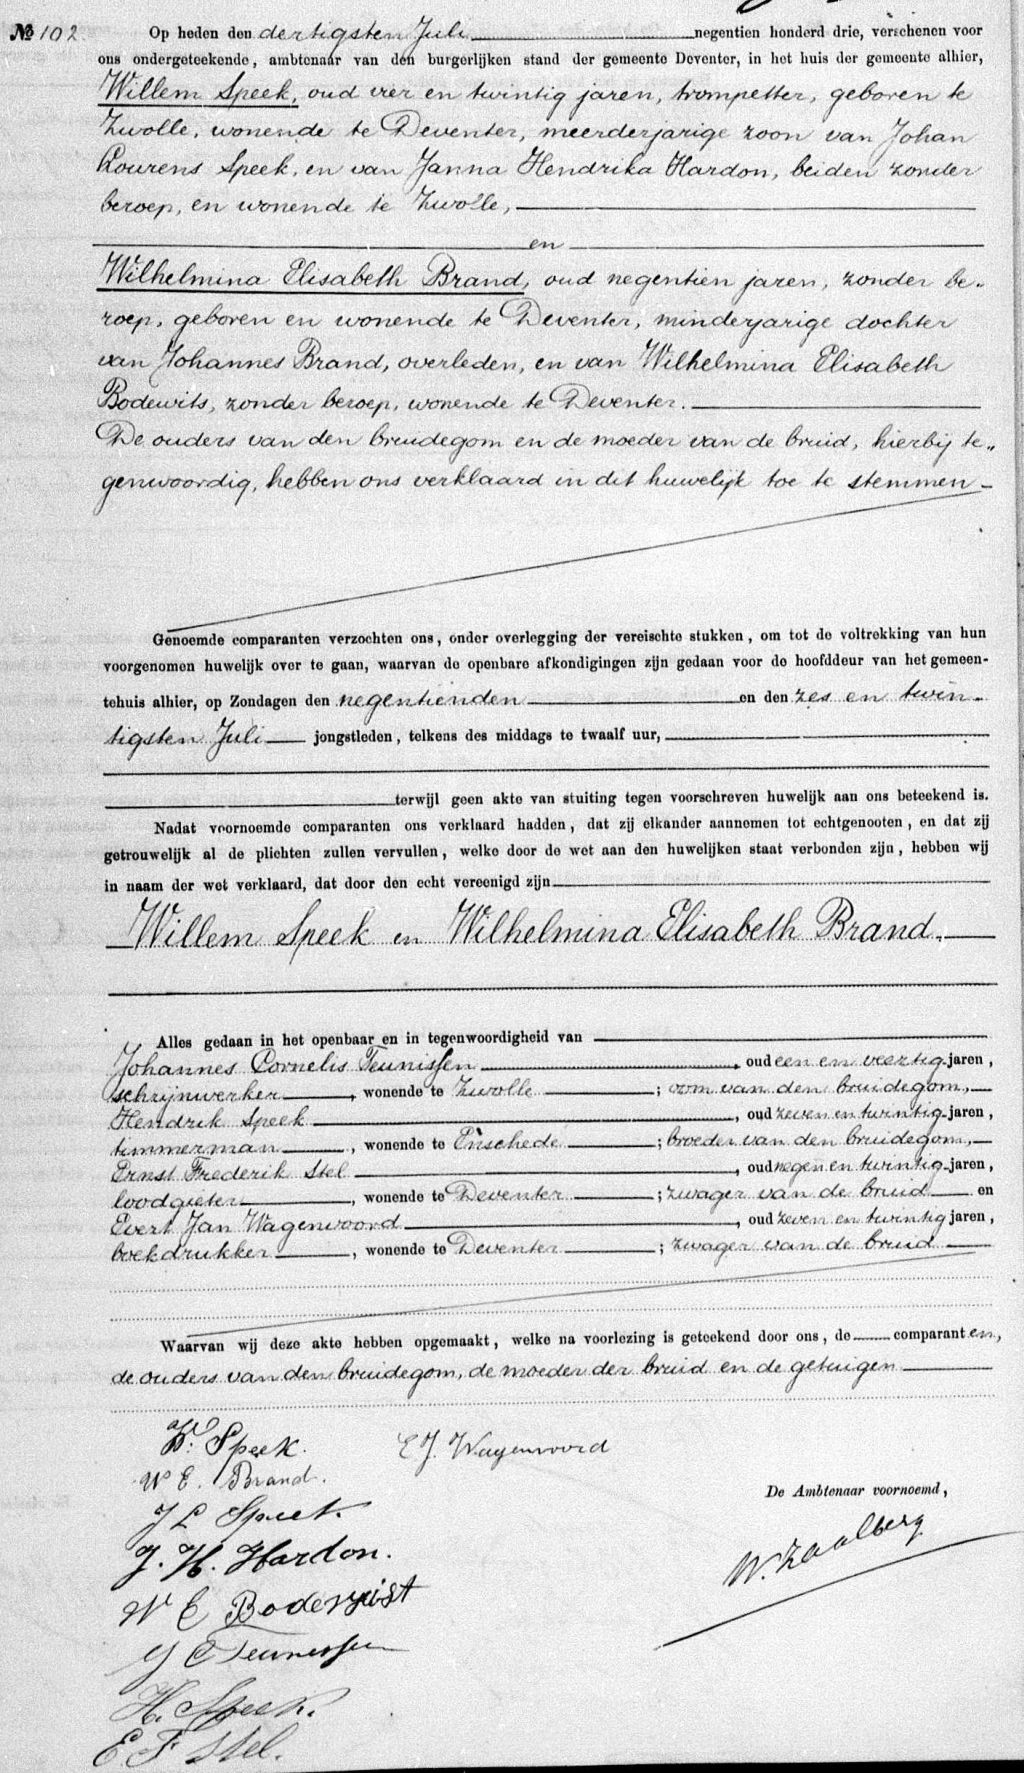 № 102. Op heden den dertigsten Juli negentien honderd drie, verschenen voor
ons ondergeteekende, ambtenaar van den burgerlijken stand der gemeente Deventer, in het huis der gemeente alhier,
Willem Speek, oud vier en twintig jaren, trompetter, geboren te
Zwolle, wonende te Deventer, meerderjarige zoon van Johan
Lourens Speek, en van Janna Hendrika Hardon, beiden zonder
beroep, en wonende te Zwolle,
en
Wilhelmina Elisabeth Brand, oud negentien jaren, zonder be-
roep, geboren en wonende te Deventer, minderjarige dochter
van Johannes Brand, overleden, en van Wilhelmina Elisabeth
Bodewits, zonder beroep, wonende te Deventer.
De ouders van den bruidegom en de moeder van de bruid, hierbij te„
genwoordig, hebben ons verklaard in dit huwelijk toe te stemmen
Genoemde comparanten verzochten ons, onder overlegging der vereischte stukken, om tot de voltrekking van hun
voorgenomen huwelijk over te gaan, waarvan de openbare afkondigingen zijn gedaan voor de hoofddeur van het gemeen-
tehuis alhier, op Zondagen den negentienden en den zes en twin-
tigsten Juli jongstleden, telkens des middags te twaalf uur,
terwijl geen akte van stuiting tegen voorschreven huwelijk aan ons beteekend is.
Nadat voornoemde comparanten ons verklaard hadden, dat zij elkander aannemen tot echtgenooten, en dat zij
getrouwelijk al de plichten zullen vervullen, welke door de wet aan den huwelijken staat verbonden zijn, hebben wij
in naam der wet verklaard, dat door den echt vereenigd zijn
Willem Speek en Wilhelmina Elisabeth Brand.
Alles gedaan in het openbaar en in tegenwoordigheid van
Johannes Cornelis Teunissen, oud een en veertig jaren,
schrijnwerker, wonende te Zwolle; oom van den bruidegom,
Hendrik Speek, oud zeven en twintig jaren,
timmerman, wonende te Enschede; broeder van den bruidegom,
Ernst Frederik Stel, oud negen en twintig jaren,
loodgieter, wonende te Deventer; zwager van de bruid en
Evert Jan Wagenvoord, oud zeven en twintig jaren,
boekdrukker, wonende te Deventer; zwager van de bruid
Waarvan wij deze akte hebben opgemaakt, welke na voorlezing is geteekend door ons, de comparanten,
de ouders van den bruidegom, de moeder der bruid en de getuigen
W. Speek. E J. Wagenvoord
W E. Brand.
De Ambtenaar voornoemd,
J L Speek.
W. Zaalberg
J. H. Hardon.
W E
J C Teunissen
H. Speek.
E F Stel.